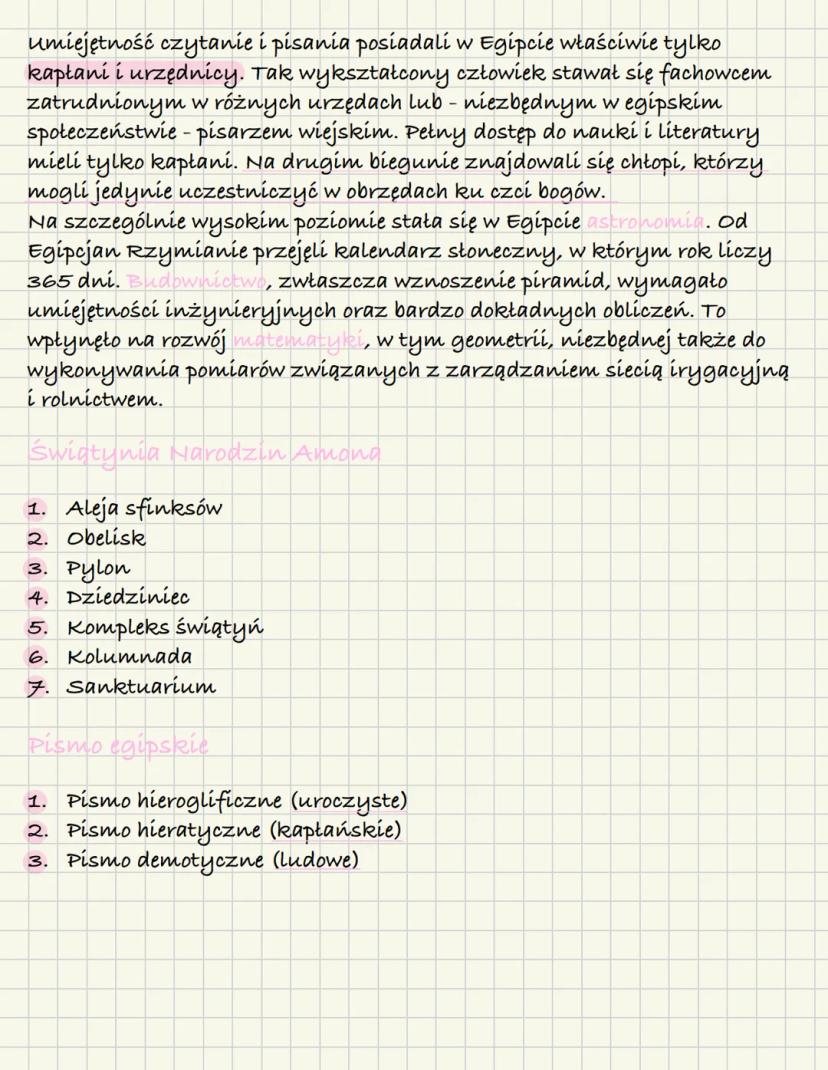 Umiejętność czytanie i pisania posiadali w Egipcie właściwie tylko
kapłani i urzędnicy. Tak wykształcony człowiek stawał się fachowcem
zatrudnionym w różnych urzędach lub - niezbędnym w egipskim
społeczeństwie - pisarzem wiejskim. Pełny dostęp do nauki i literatury
mieli tylko kapłani. Na drugim biegunie znajdowali się chłopi, którzy
mogli jedynie uczestniczyć w obrzędach ku czci bogów.
Na szczególnie wysokim poziomie stała się w Egipcie astronomia. Od
Egipcjan Rzymianie przejęli kalendarz słoneczny, w którym rok liczy
365 dni. Budownictwo, zwłaszcza wznoszenie piramid, wymagało
umiejętności inżynieryjnych oraz bardzo dokładnych obliczeń. To
wpłynęło na rozwój matematyki, w tym geometrii, niezbędnej także do
wykonywania pomiarów związanych z zarządzaniem siecią irygacyjną
i rolnictwem.
Świątynia Narodzin Amona
1. Aleja sfinksów
2. Obelisk
3. Pylon
4. Dziedziniec
5. Kompleks świątyń
6. Kolumnada
7. Sanktuarium
Pismo egipskie
1. Pismo hieroglificzne (uroczyste)
2. Pismo hieratyczne (kapłańskie)
3. Pismo demotyczne (ludowe)